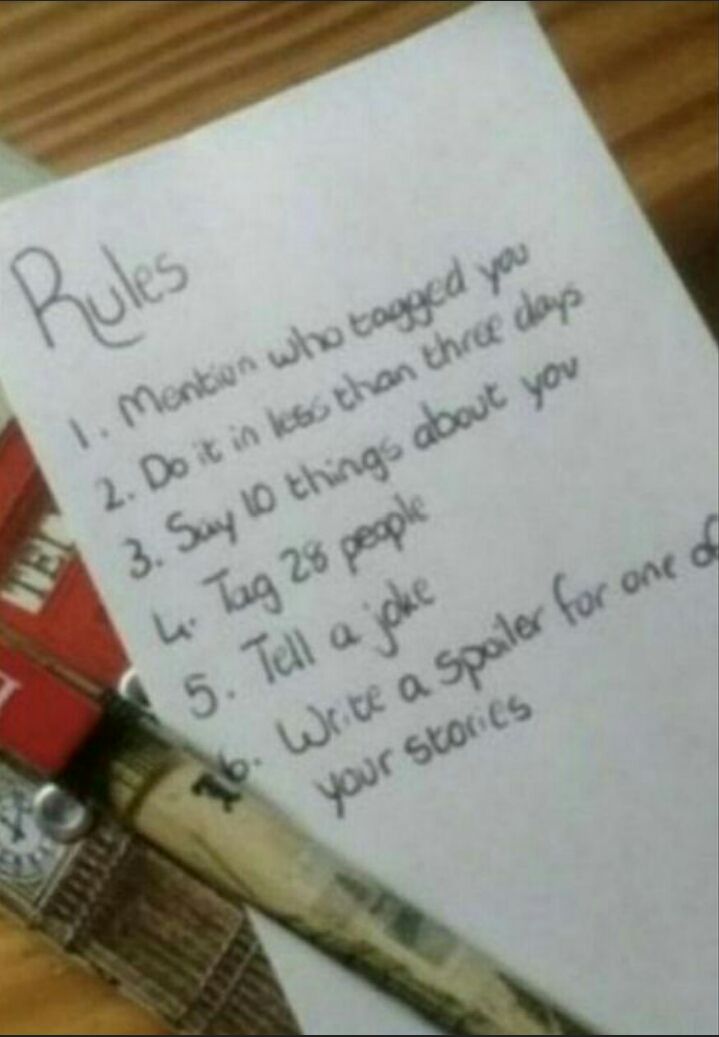 Rules
1. Mention who tagged you
2. Do it in less than three days
3. Say 10 things about you
4. Tag 28 people
5. Tell a joke
6. Write a spoiler for one of
your stories
TEL